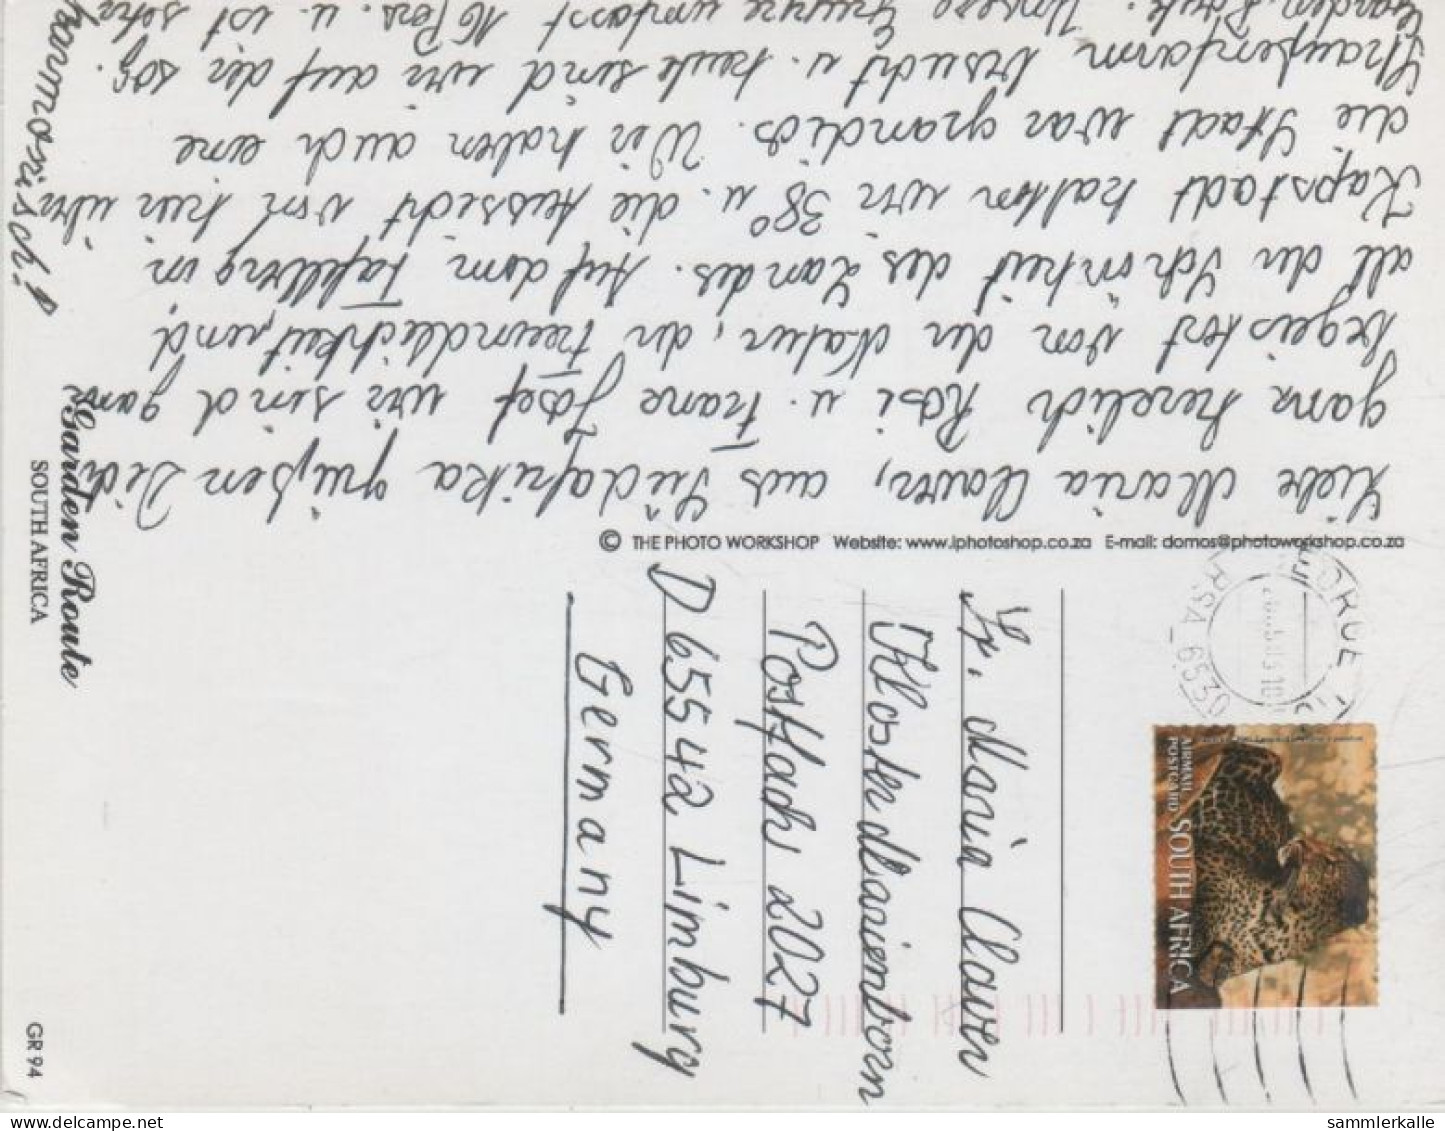 Liebe Maria Claver, aus Südafrika grüßen Dich
ganz herzlich Rosi u. Franz Josef wir sind ganz
begeistert von der Natur, der Freundlichkeit, und
all der Schönheit des Landes. Auf dem Tafelberg in
Kapstadt hatten wir 38° u. die Aussicht von hier über
die Stadt war grandios. Wir haben auch eine
Straußenfarm besucht u. heute sind wir auf der sog.
Garden-Route. Unsere Gruppe umfasst 16 Pers. u. ist sehr
harmonisch!
Garden Route
SOUTH AFRICA
GR 94
© THE PHOTO WORKSHOP Website: www.iphotoshop.co.za E-mail: domos@photoworkshop.co.za
Sr. Maria Claver
Kloster Marienborn
Postfach 2027
D 65542 Limburg
Germany
GEORGE
RSA 6530
AIRMAIL
POSTCARD
SOUTH AFRICA
sammlerkalle